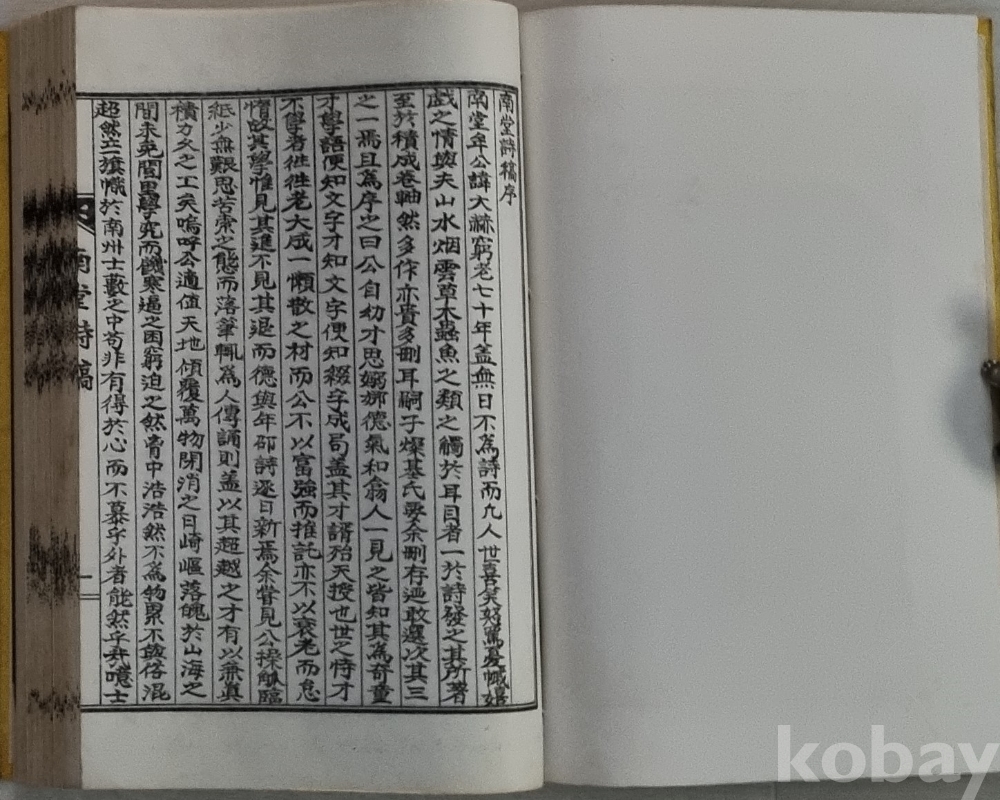 南堂詩稿序
南堂牟公諱大赫窮老七十年盖無日不為詩而凡人世喜笑怒罵憂嬉
戲之情與夫山水烟雲草木蟲魚之類之觸於耳目者一於詩發之其所著
至於積成卷軸然多作亦貴多刪耳嗣子燦基氏要余刪存廼敢選次其三
之一焉且為序之曰公自幼才思婀娜德氣和翕人一見之皆知其為奇童
才學語便知文字才知文字便知綴字成句盖其才諝殆天授也世之恃才
不學者徃徃老大成一懶散之材而公不以富強而推託亦不以衰老而怠
惰故其學惟見其進不見其退而德與年邵詩逐日新焉余嘗見公操觚臨
紙少無艱思苦索之態而落筆輒為人傳誦則盖以其超越之才有以兼眞
積力久之工矣嗚呼公適值天地傾覆萬物閉消之日崎嶇落魄於山海之
間未免閭里學究而饑寒逼之困窮迫之然胷中浩浩然不為物累不敢俗混
超然立一旗幟於南州士藪之中苟非有得於心而不慕乎外者能然乎哉噫士
南堂詩稿
一
kobay